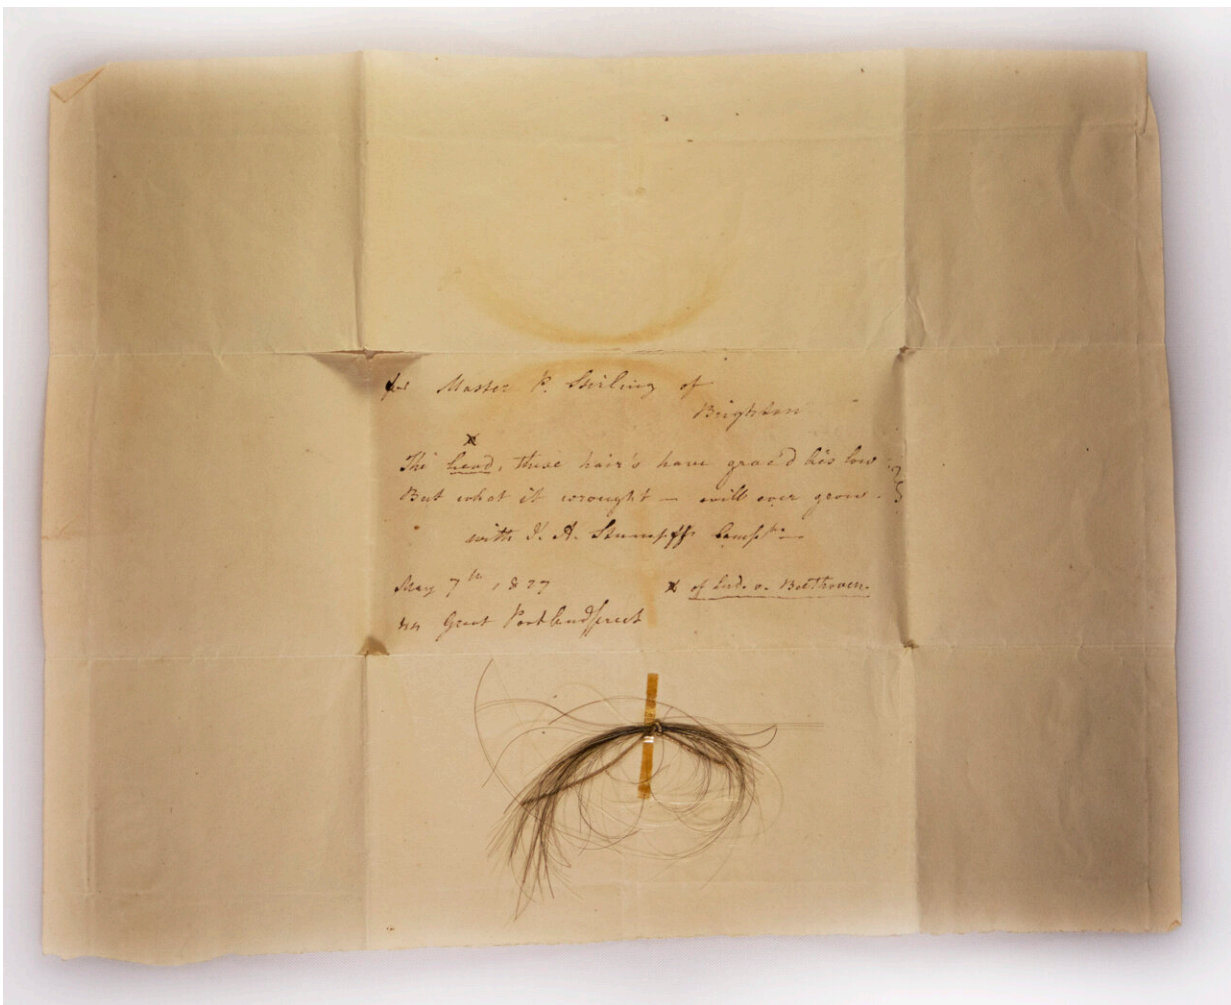 for Master P. Stirling of
Brighton
The head, these hair's have grac'd lies low
But what it wrought — will ever grow.
with J. A. Stumpff Compts —
May 7th 1827
of Lud. v. Beethoven.
Great Portland street